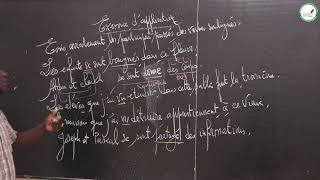 Exercice d'application
Ecris correctement les participes passés des verbes soulignés.
Les enfants se sont baignés dans ce fleuve.
se sont
Les élèves que j'ai vu étudier dans cette salle font la troisième.
maison que j'ai vu détruire appartiennent à ce vieux.
Joseph et Pascal se sont partagé des informations.